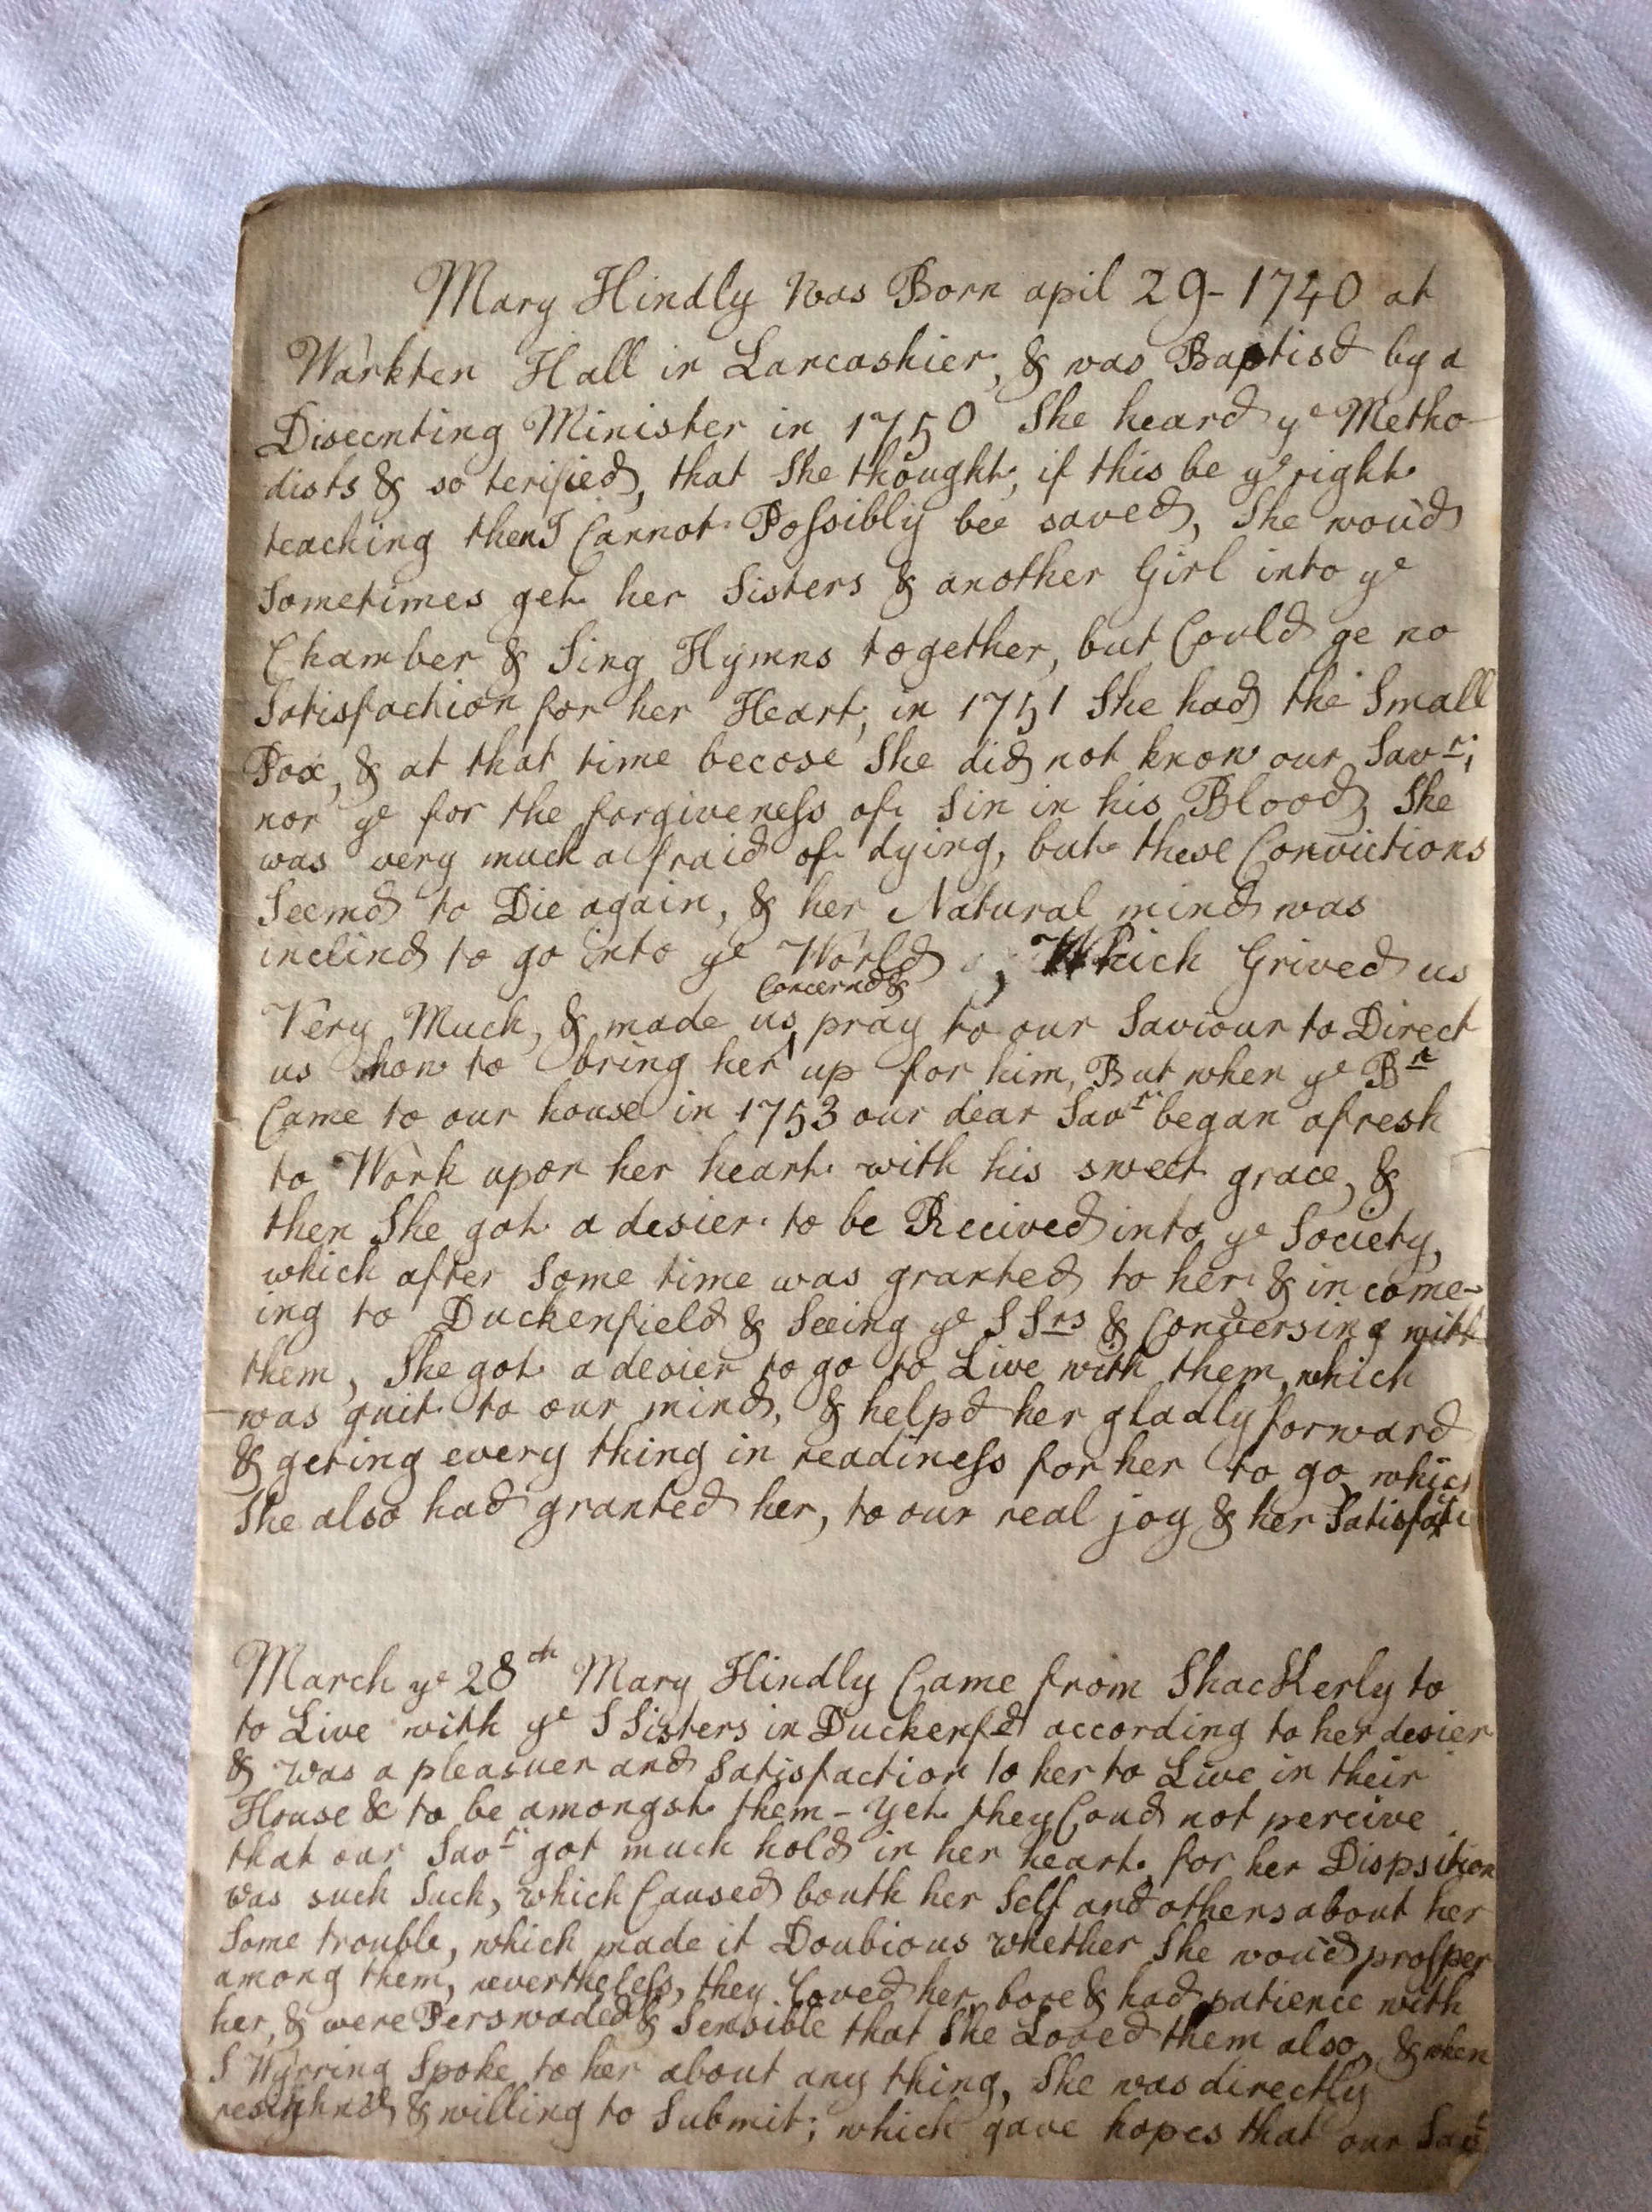 Mary Hindly Was Born apil 29-1740 at
Warkten Hall in Lancashier, & was Baptisd by a
Disecnting Minister in 1750 She heard ye Metho-
dists & so terified, that She thought, if this be ye right
teaching then I Cannot Possibly bee saved, She woud
Sometimes get her Sisters & another Girl into ye
Chamber & Sing Hymns together, but Could ge no
Satisfachion for her Heart; in 1751 She had the Small
Pox, & at that time becose She did not know our Savr;
nor ye for the forgiveness of Sin in his Blood, She
was very much afraid of dying, but these Convictions
Seemd to Die again, & her Natural mind was
inclind to go into ye World, Which Grived us
Concernd &
Very Much, & made us pray to our Saviour to Direct
us how to bring her up for him, But when ye Brn
Came to our house in 1753 our dear Savr began afresh
to Work upon her heart with his sweet grace, &
then She got a desier to be Recived into ye Society,
which after Some time was granted to her, & in come-
ing to Duckenfield & Seeing ye S Srs & Conversing with
them, She got a desier to go to Live with them, which
was quit to our mind, & helpd her gladly forward
& geting every thing in readiness for her to go, which
She also had granted her, to our real joy & her Satisfacti
March ye 28th Mary Hindly Came from Shackerly to
to Live with ye S Sisters in Duckenfd according to her desier
& was a pleasuer and Satisfaction to her to Live in their
House & to be amongst them - yet they Coud not percive
that our Savr got much hold in her heart for her Dispsition
was such Such, which Caused bouth her Self and others about her
Some trouble, which made it Doubious whether She woud prosper
among them, nevertheless, they Loved her, bore & had patience with
her, & were Perswaded & Sensible that She Loved them also, & when
S Wyrring Spoke to her about any thing, She was directly
& willing to Submit; which gave hopes that our Savr